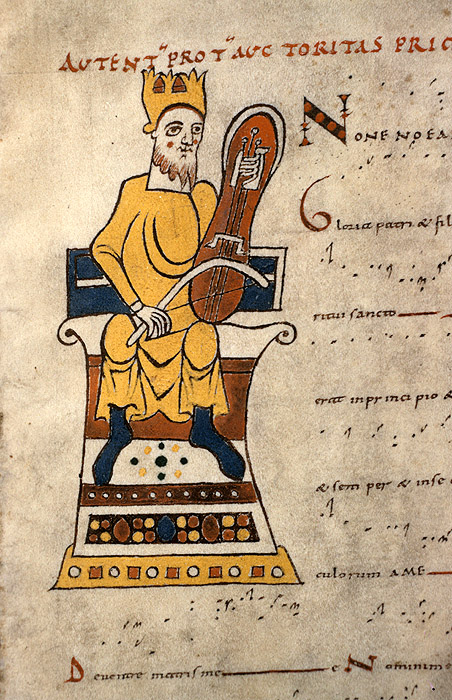 AUTENT PROT AUCTORITAS PRIC
NONENOEA
Gloria patri & fil
ritui sancto
erat in principio &
& sem per & in se
culorum AME
matris me e Nomini